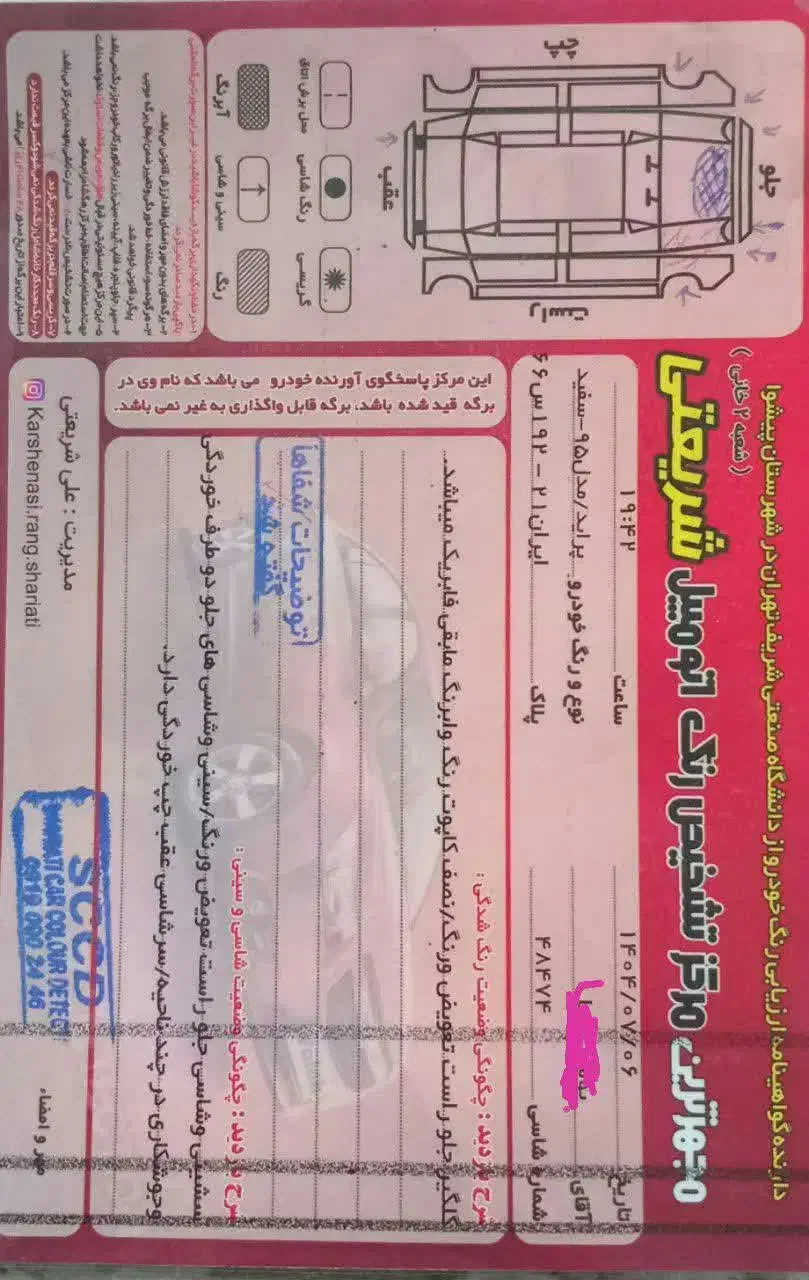 دارنده گواهینامه ارزیابی رنگ خودرو از دانشگاه صنعتی شریف تهران در شهرستان پیشوا
(شعبه ۲ خالی)
مجهزترین مرکز تشخیص رنگ اتومبیل شریعتی
تاریخ ۱۴۰۴/۰۷/۰۶ ساعت ۱۹:۴۲
آقای نوع و رنگ خودرو پراید/مدل۹۵-سفید
شماره شاسی ۴۸۴۷۴ پلاک ایران۲۱ - ۱۹۲س۶۶
شرح بازدید : چگونگی وضعیت رنگ شدگی :
گلگیر جلو راست تعویض ورنگ/نصف کاپوت رنگ وابرنگ مابقی فابریک میباشد..
شرح بازدید : چگونگی وضعیت شاسی و سینی :
سینی وشاسی جلو راست تعویض ورنگ/سینی وشاسی های جلو دو طرف خوردگی
وجوشکاری در چند ناحیه/سرشاسی عقب چپ خوردگی دارد.
توضیحات شفاهاً
گفته شد
این مرکز پاسخگوی آورنده خودرو می باشد که نام وی در
برگه قید شده باشد، برگه قابل واگذاری به غیر نمی باشد.
جلو
عقب
چپ
راست
محل برش اتاق
رنگ شاسی
گریسی
آبرنگ
سینی و شاسی
رنگ
۷-گریسی و سرقلم در برگه قید نمی گردد
مدیریت : علی شریعتی
Karshenasi.rang.shariati
مهر و امضاء
SCCD
SHARIATI CAR COLOUR DETECT
0919 000 24 46